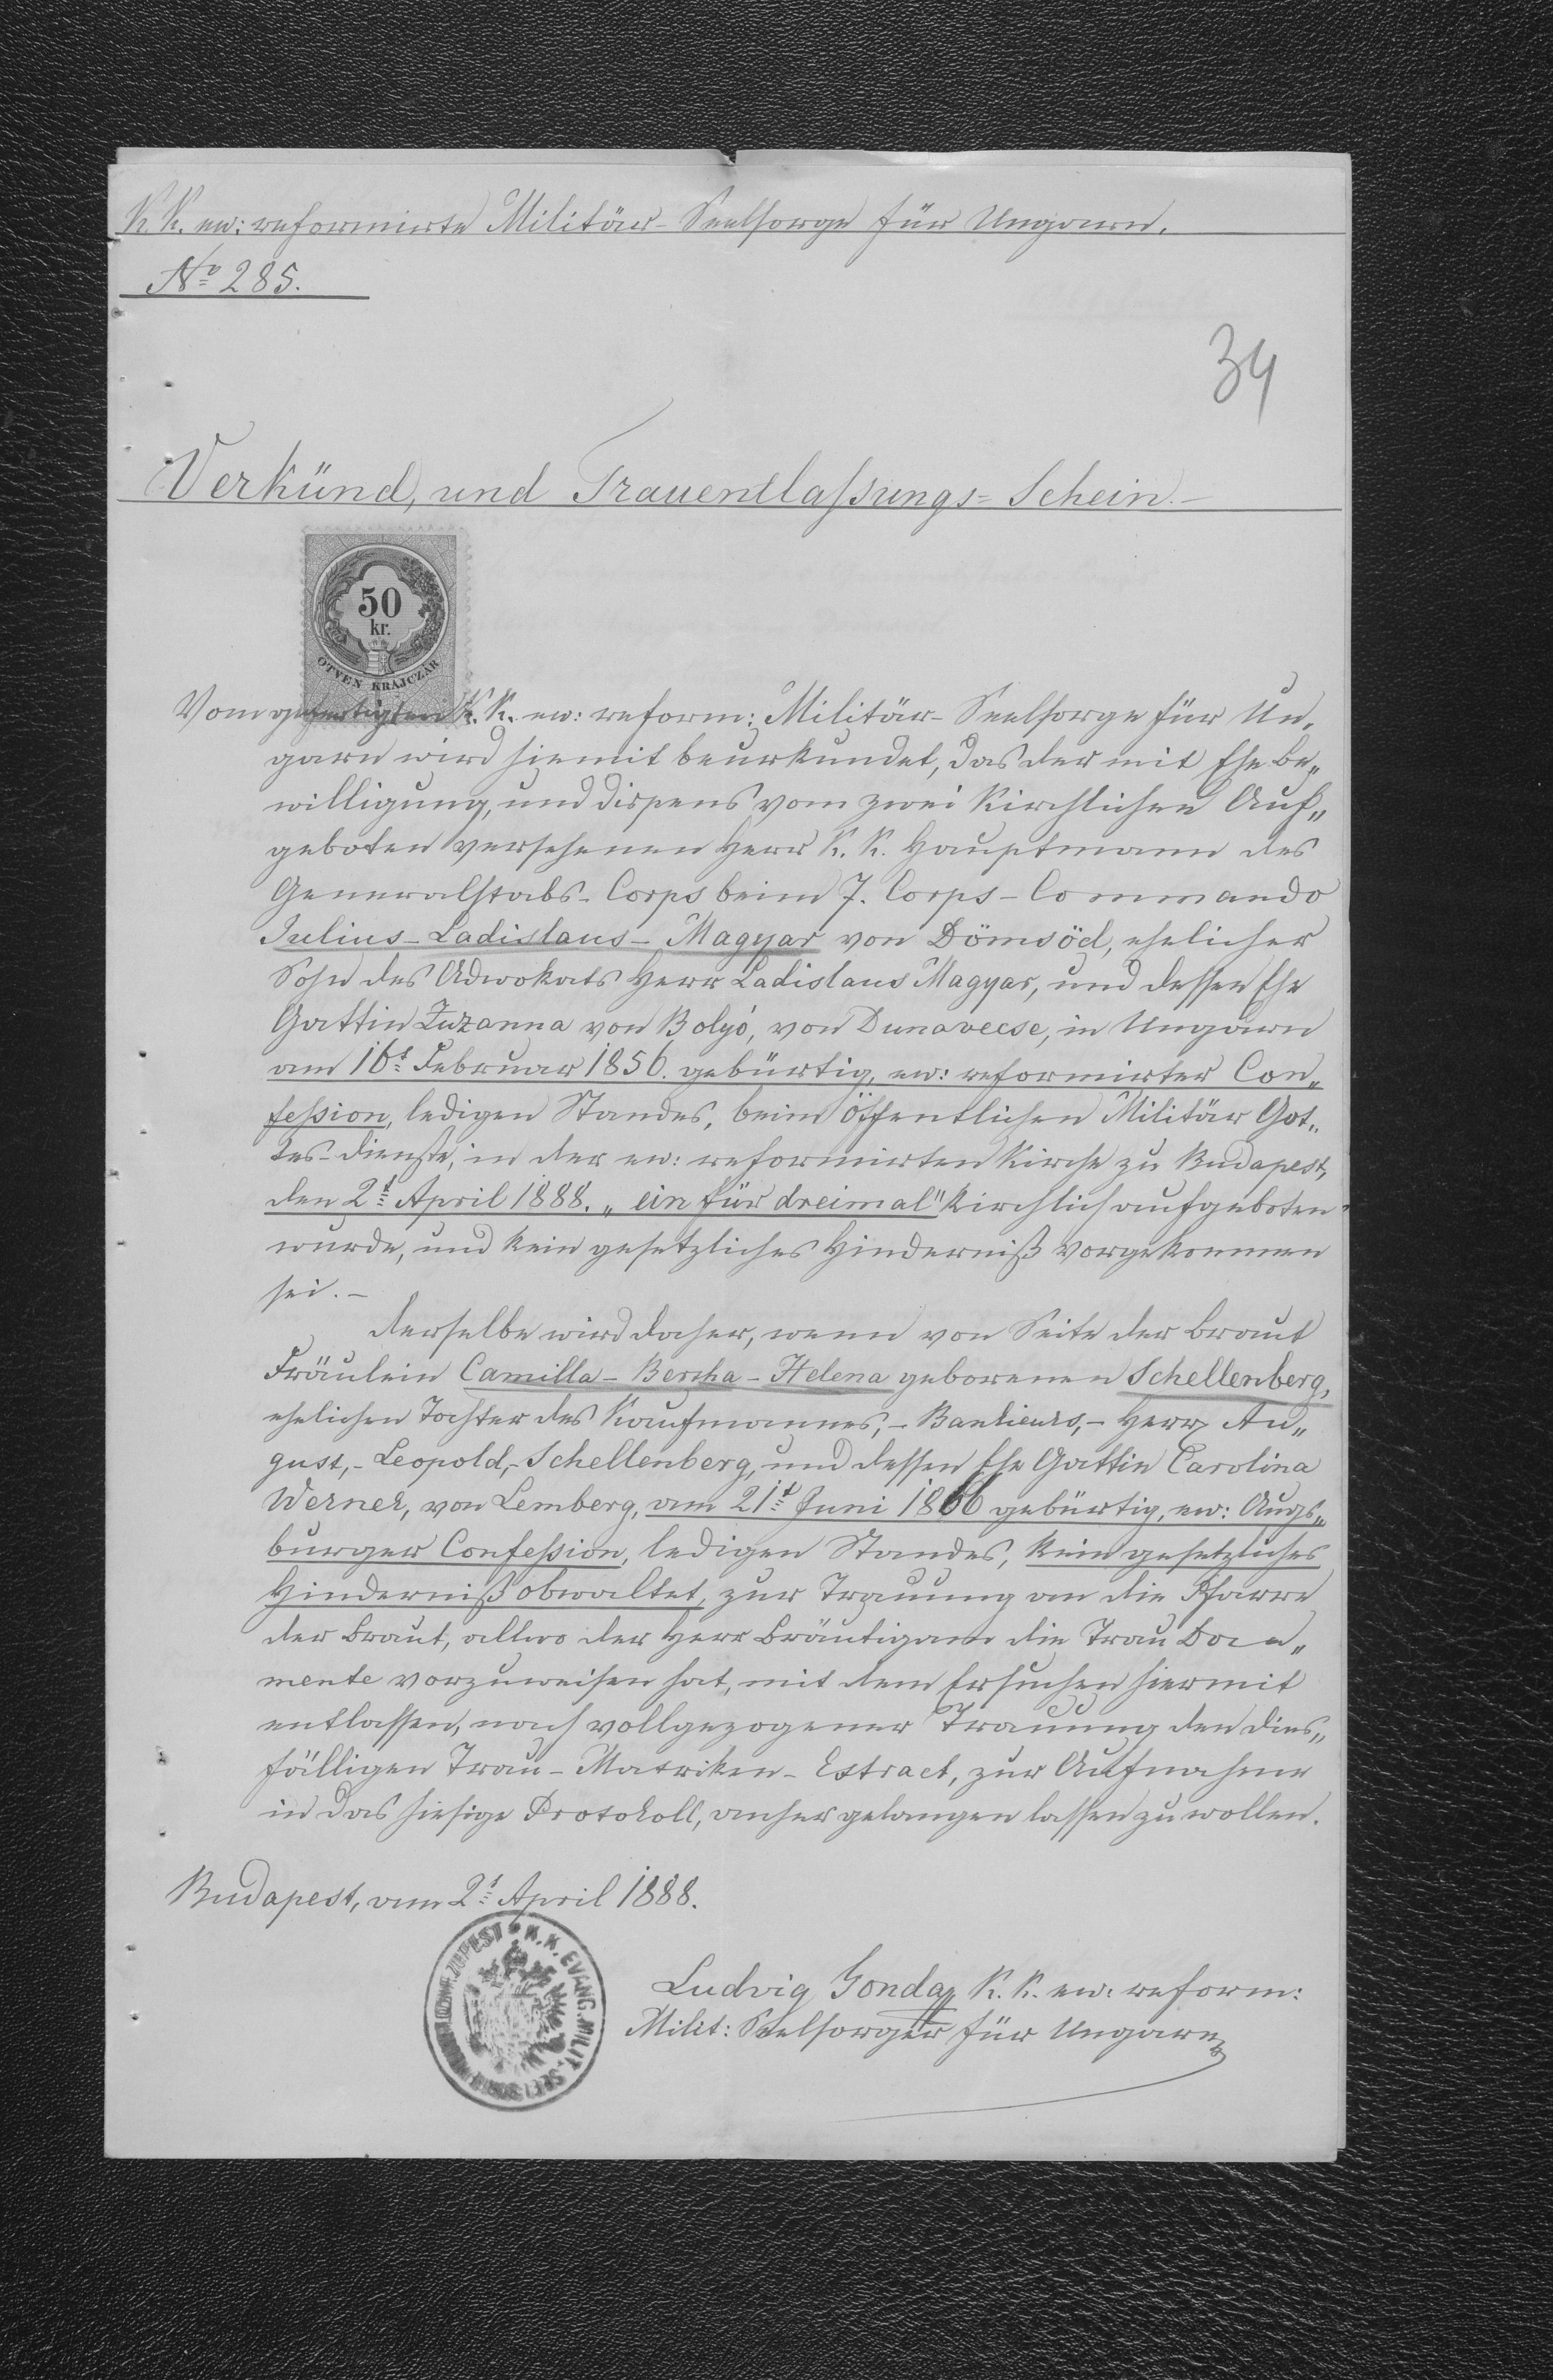 K. K. ev: reformirte Militär-Seelsorge für Ungarn.
No 285.
34
Verkünd, und Trauentlaßungs=Schein.-
50
kr.
ÖTVEN KRAJCZÁR
Vom gefertigten K. K. ev: reform: Militär-Seelsorge für Un„
garn wird hiemit beurkundet, das der mit Ehe be„
willigung, und dispens vom zwei Kirchlichen Auf„
geboten versehenen Herr K. K. Hauptmann des
Generalstabs-Corps beim 7. Corps-Commando
Julius-Ladislaus-Magyar von Dömsöd, ehelicher
Sohn des Advokats Herr Ladislaus Magyar, und dessen Ehe
Gattin Zuzanna von Bolyó, von Dunavecse, in Ungarn
am 16t Februar 1856. gebürtig, ev: reformirter Con„
feßion, ledigen Standes, beim öffentlichen Militär Got„
tes-dienste, in der ev: reformirten Kirche zu Budapest,
den 2t April 1888. „ein für dreimal" Kirchlich aufgeboten
wurde, und kein gesetzliches Hinderniß vorgekommen
sei.-
Derselbe wird daher, wenn von Seite der Braut
Fräulein Camilla-Bertha-Helena geborenen Schellenberg,
ehelichen Tochter des Kaufmannes,-Bankieurs,-Herr Au„
gust,-Leopold,-Schellenberg, und dessen Ehe Gattin Carolina
Werner, von Lemberg, am 21t Juni 1866 gebürtig, ev: Augs„
burger Confeßion, ledigen Standes, kein gesetzliches
Hinderniß obwaltet, zur Trauung an die Pfarre
der Braut, allwo der Herr Bräutigam die Trau Docu„
mente vorzuweisen hat, mit dem Ersuchen hiermit
entlassen, nach vollgezogener Trauung den dies„
fälligen Trau-Matriken-Extract, zur Aufnahme
in das hiesige Protokoll, anher gelangen lassen zu wollen.
Budapest, am 2t April 1888.
K. K. EVANG. MILIT. SEELSORGE
Ludvig Gonda K. K. ev: reform:
Milit: Seelsorger für Ungarn